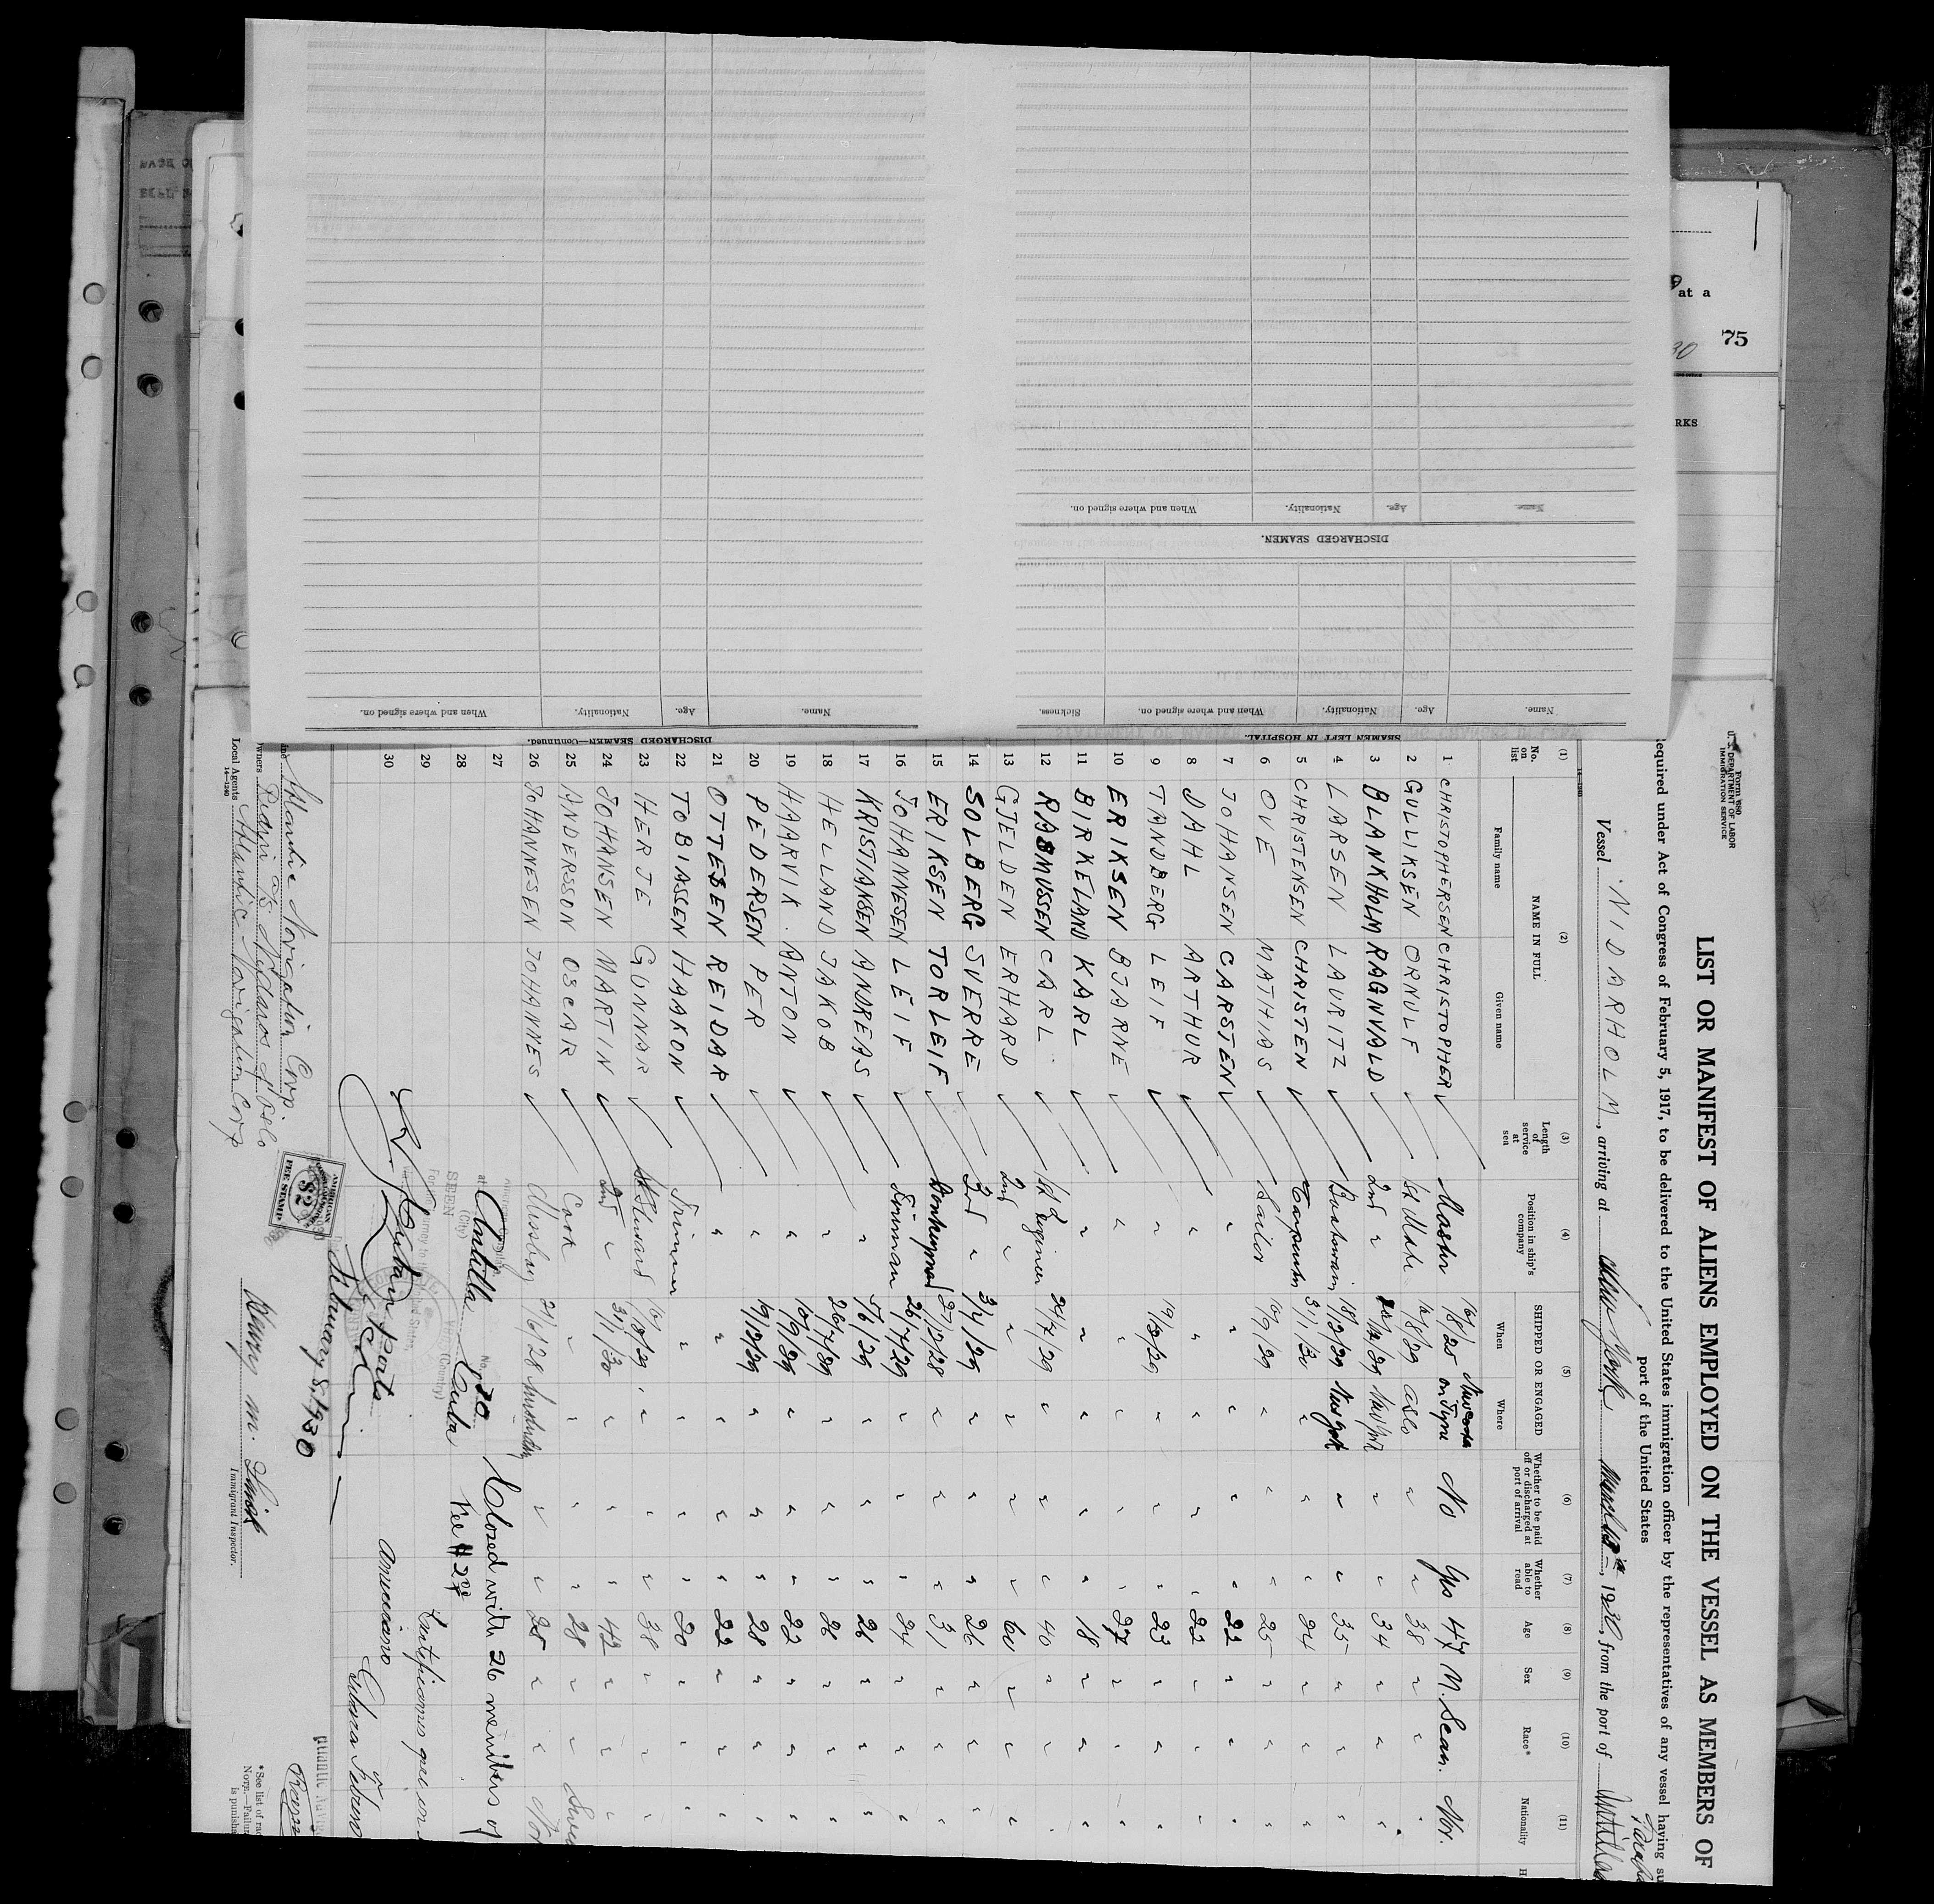 Form 680
U. S. DEPARTMENT OF LABOR
IMMIGRATION SERVICE
LIST OR MANIFEST OF ALIENS EMPLOYED ON THE VESSEL AS MEMBERS OF
Required under Act of Congress of February 5, 1917, to be delivered to the United States immigration officer by the representatives of any vessel having su
port of the United States
Vessel NIDARHOLM, arriving at New York March, 1930, from the port of
(1) (2) (3) (4) (5) (6) (7) (8) (9) (10) (11)
No. on list NAME IN FULL Family name Given name Length of service at sea Position in ship's company SHIPPED OR ENGAGED When Where Whether to be paid off or discharged at port of arrival Whether able to read Age Sex Race* Nationality H
1 CHRISTOPHERSEN CHRISTOPHER Master 16/8/25 on Tyne No Yes 47 M. Scan. Nor.
2 GULLIKSEN ORNULF 1st Mate 16/8/29 Oslo " " 38 " " "
3 BLANKHOLM RAGNVALD 2nd " New York " " 34 " " "
4 LARSEN LAURITZ Boatswain 18/2/29 New York " " 35 " " "
5 CHRISTENSEN CHRISTEN Carpenter 31/1/30 " " " 24 " " "
6 OVE MATHIAS Sailor 19/9/29 " " " 25 " " "
7 JOHANSEN CARSTEN " " " " " 22 " " "
8 DAHL ARTHUR " " " " " 22 " " "
9 TANDBERG LEIF " 19/3/29 " " " 23 " " "
10 ERIKSEN BJARNE " " " " " 27 " " "
11 BIRKELAND KARL " " " " " 18 " " "
12 RASMUSSEN CARL 1st Engineer 24/7/29 " " " 40 " " "
13 GJELDEN ERHARD 2nd " " " " " 60 " " "
14 SOLBERG SVERRE 3rd " 3/4/29 " " " 26 " " "
15 ERIKSEN TORLEIF Donkeyman 27/12/28 " " " 31 " " "
16 JOHANNESEN LEIF Fireman 26/7/29 " " " 24 " " "
17 KRISTIANSEN ANDREAS " 7/6/29 " " " 26 " " "
18 HELLAND JAKOB " 26/7/29 " " " 26 " " "
19 HAARVIK ANTON " 19/9/29 " " " 22 " " "
20 PEDERSEN PER " 19/3/29 " " " 28 " " "
21 OTTESEN REIDAR " " " " " 22 " " "
22 TOBIASSEN HAAKON Trimmer " " " " 20 " " "
23 HERJE GUNNAR St. Steward 16/8/29 " " " 38 " " "
24 JOHANSEN MARTIN 2nd " 31/1/30 " " " 42 " " "
25 ANDERSSON OSCAR Cook " " " " 28 " "
26 JOHANNESEN JOHANNES Messboy 21/6/28 " " 25 " " Nor
27 Closed with 26 members of
28 at Antilla Cuba No. 30 Fee $2
(City) (Country)
SEEN
29
30
February 8, 1930
AMERICAN
$2
FEE STAMP
Line Atlantic Navigation Corp
Owners
Local Agents Atlantic Navigation Corp
14—1240
Henry M.
Immigrant Inspector.
*See list of rac
NOTE.—Failur
is punisha
SEAMEN LEFT IN HOSPITAL.
Name. Age. Nationality. When and where signed on. Sickness.
DISCHARGED SEAMEN.
Name. Age. Nationality. When and where signed on.
DISCHARGED SEAMEN—Continued.
Name. Age. Nationality. When and where signed on.
at a
75
30
RKS